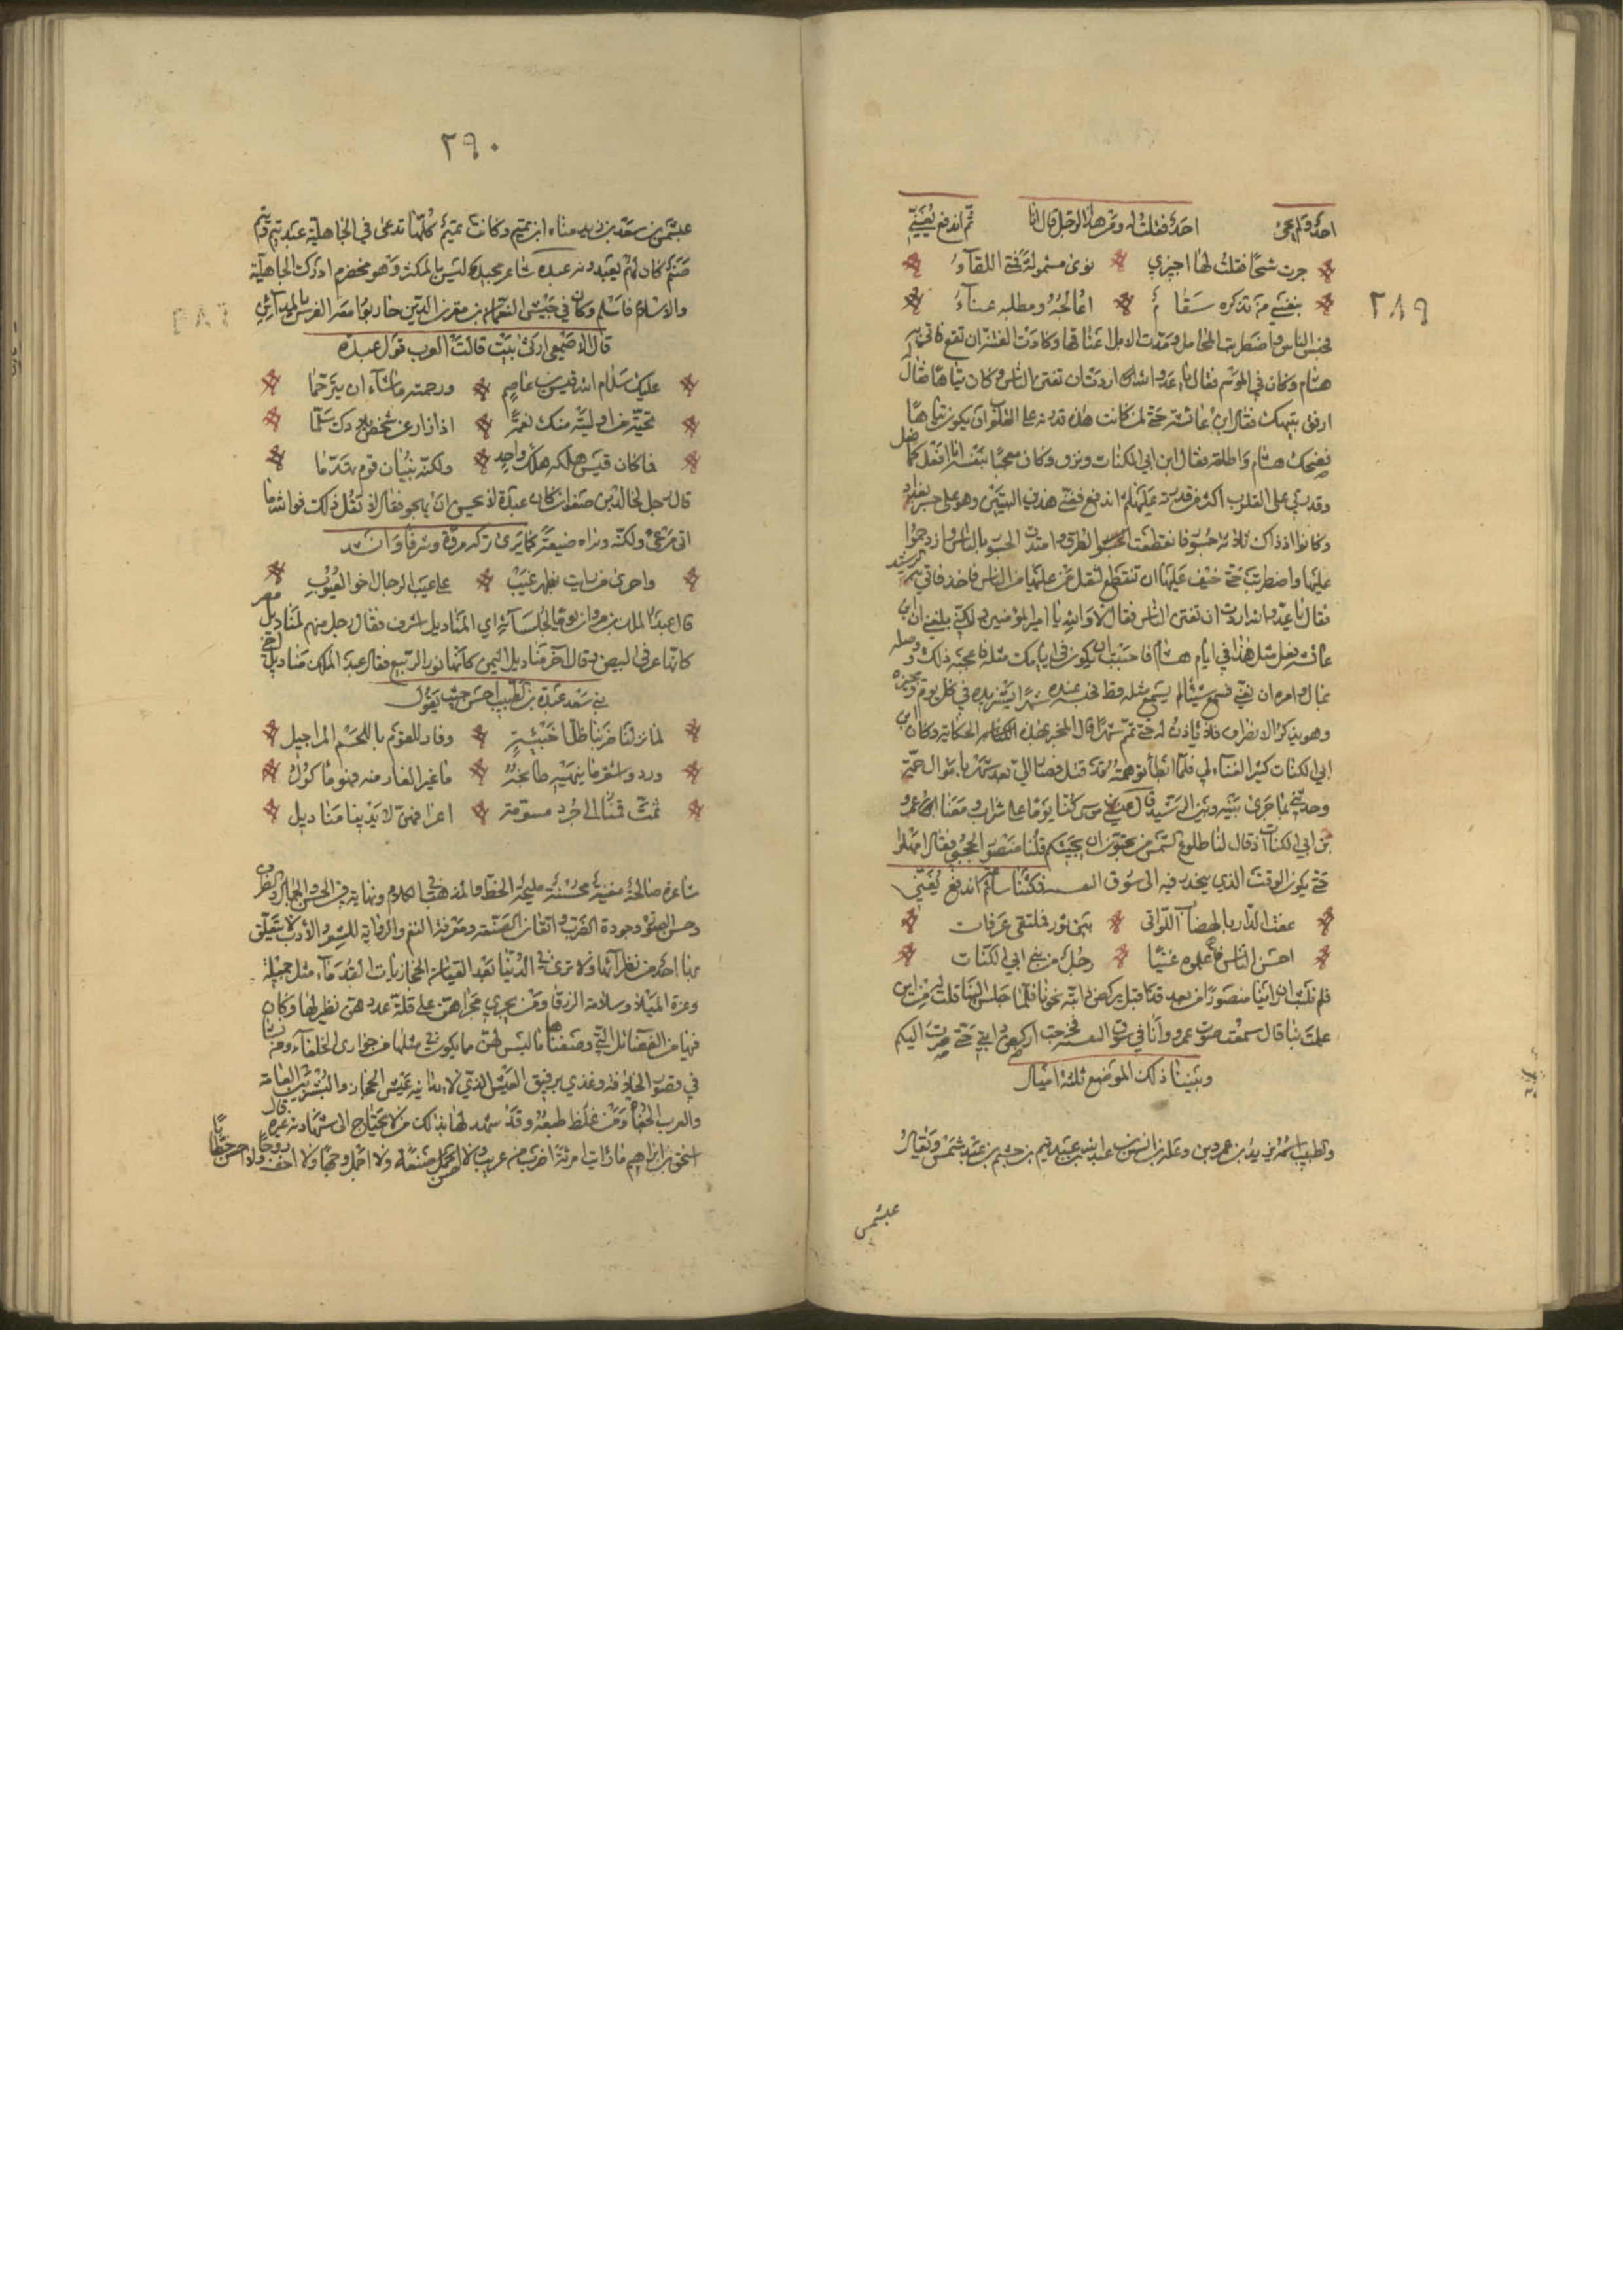 ٢٨٩
احدا ولم يجئ احد فقلت له ومن هذا الرجل قال انا ثم اندفع يغني
جرت سنحا فقلت لها اجيزي نوى مشمولة فمتى اللقاء
بنفسي من تذكره سقام اعالجه ومطلبه عناء
فحبس الناس واضطربت المحامل ومدت الابل اعناقها وكادت الفتنة ان تقع فاتي به
هشام وكان في الموسم فقال يا عدو الله اردت ان تفتن الناس وكان تياها فقال
ارفق بتيهك فقال ابن عائشة حق لمن كانت هذه قدرته على القلوب ان يكون تياها
فضحك هشام واطلقه فقال ابن ابي الكنات وكان معجبا بنفسه انا افعل كما فعل
وقدرتي على القلوب اكثر من قدرته عليها ثم اندفع فغنى هذين البيتين وهو على جسر بغداد
وكانوا اذ ذاك ثلاثة جسور فانقطعت الطرق وامتدت الجسور بالناس وازدحموا
عليها واضطربت حتى خيف عليها ان تنقطع لثقل من عليها من الناس فاخذ فاتي به الرشيد
فقال يا عدو الله اردت ان تفتن الناس فقال لا والله يا امير المؤمنين ولكني بلغني ان ابن
عائشة فعل مثل هذا في ايام هشام فاحببت ان يكون في ايامك مثله فاعجبه ذلك ووصله
بمال وامره ان يغني فسمع شيئا لم يسمع مثله قط فحبسه عنده شهرا يستزيده في كل يوم ويجيزه
وهو يذكر الانصراف فلا ياذن له حتى تمم شهرا قال المخبر بهذه الحكاية وكان ابن
ابي الكنات كثير الغشيان لي فلما ابطأ توهمته قد قتل فصار الي بعد شهر باموال جمة
وحدثني بما جرى بينه وبين الرشيد قال كنا يوما على شراب ومعنا عمرو
بن ابي الكنات اذ قال لنا قبل طلوع الشمس من تحبون ان يجيئكم قلنا منصور الحجبي فقال امهلوا
حتى يكون الوقت الذي ينحدر فيه الى سوق البقر فمكثنا ساعة ثم اندفع يغني
عفت الدار بالهضاب اللواتي بين ثور فملتقى عرفات
احسن الناس فاعلموه غناء رجل من بني ابي الكنات
فلم نلبث ان راينا منصورا من بعد قد اقبل يركض دابته نحونا فلما جلس الينا قلت له من اين
علمت بنا قال سمعت صوت عمرو وانا في سوق البقر فخرجت اركض دابتي حتى صرت اليكم
وبيننا وبين ذلك الموضع ثلثة اميال
والطبيب اسمه يزيد بن عمرو بن وعلة بن انس بن عبد الله بن عبد نهم بن جشم بن عبد شمس ويقال
عبشمس
٢٩٠
عبشمس بن سعد بن زيد مناة ابن تميم وكانت تميم كلها تدعى في الجاهلية عبد تيم وتيم
صنم كان لهم يعبدونه عبدة شاعر مجيد ليس بالمكثر وهو مخضرم ادرك الجاهلية
والاسلام فاسلم وكان في جيش النعمان بن مقرن الذين حاربوا معه الفرس بالمدائن
قال الاصمعي ارثى بيت قالت العرب قول عبدة
عليك سلام الله قيس بن عاصم ورحمته ما شاء ان يترحما
تحية من اوليته منك نعمة اذا زار عن شحط بلادك سلما
فما كان قيس هلكه هلك واحد ولكنه بنيان قوم تهدما
قال رجل لخالد بن صفوان كان عبدة لا يحسن ان يهجو فقال لا تقل ذلك فوالله ما
ابى من عي ولكنه يراه ضيعة كما يرى تركه مروة وشرفا وانشد
واجرى من رايت بظهر غيب على عيب الرجال اخو العيوب
قال عبد الملك بن مروان يوما لجلسائه اي المناديل اشرف فقال رجل منهم مناديل مصر
كانها غرقى البيض وقال آخر مناديل اليمن كانها نور الربيع فقال عبد الملك مناديل اخي
بني سعد عبدة بن الطبيب احسن حيث يقول
لما نزلنا ضربنا ظل اخبية وفار للقوم باللحم المراجيل
ورد واشقر ما ينهيه طابخه ما غير الغلي منه فهو ماكول
ثمت قمنا الى جرد مسومة اعرافهن لايدينا مناديل
شاعرة صالحة مغنية محسنة مليحة الخط والمذهب في الكلام ونهاية في الحسن والجمال والظرف
وحسن الصوت وجودة الضرب واتقان الصنعة ومعرفة النغم والرواية للشعر والادب لا يتعلق
بها احد من نظرائها ولا ترى في الدنيا بعد القيان الحجازيات القدماء مثل جميلة
وعزة الميلاء وسلامة الزرقاء ومن يجري مجراهن على قلة عددهن نظير لها وكان
فيها من الفضائل التي وصفناها ما ليس لهن مما يكون في مثلها من جواري الخلفاء ومن نشا
في قصور الخلافة وغذي برقيق العيش الذي لا يدانيه عيش الحجاز والنشو بين العامة
والعرب الجفاة ومن غلظ طبعه وقد شهد لها بذلك من لا يحتاج الى شهادة غيره قال
اسحق بن ابراهيم ما رايت امرأة اضرب من عريب ولا احسن صنعة ولا احسن وجها ولا اخف روحا ولا احسن خطابا